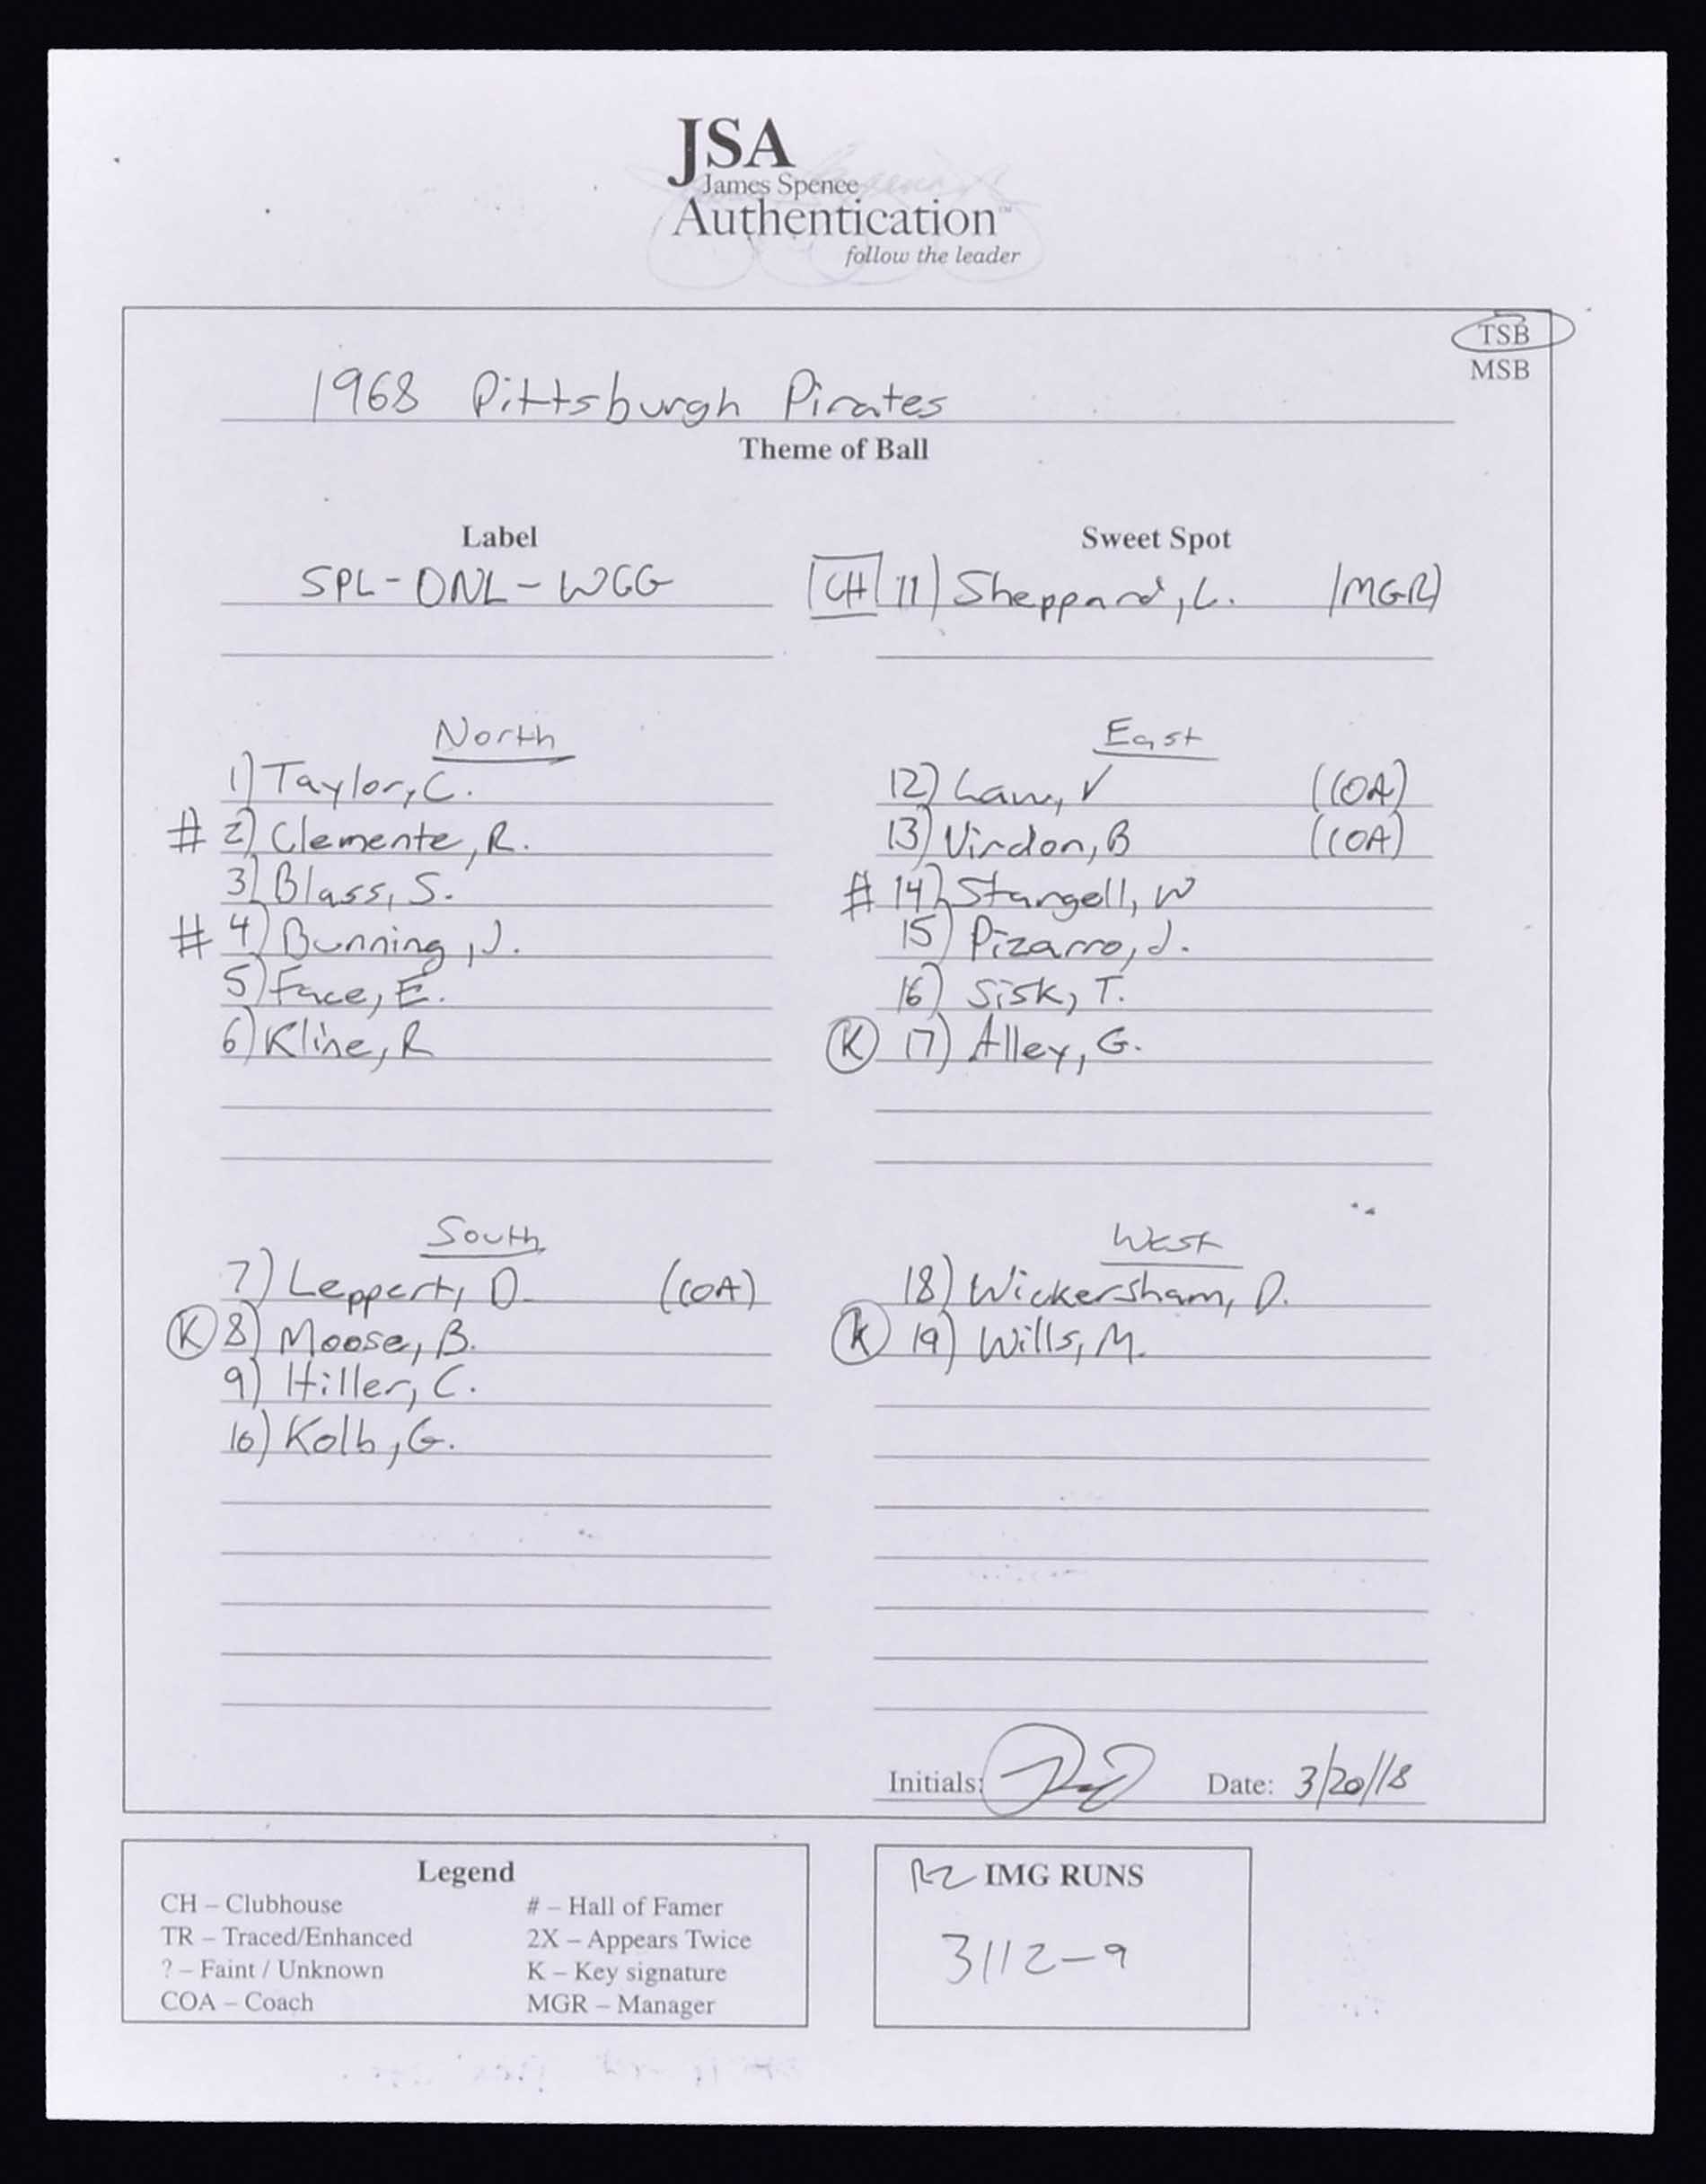 JSA
James Spence
Authentication™
follow the leader
TSB
MSB
1968 Pittsburgh Pirates
Theme of Ball
Label
SPL-ONL-WGG
Sweet Spot
CH 11) Sheppard, L. (MGR)
North
1) Taylor, C.
# 2) Clemente, R.
3) Blass, S.
# 4) Bunning, J.
5) Face, E.
6) Kline, R
East
12) Law, V (COA)
13) Virdon, B (COA)
# 14) Stargell, W
15) Pizarro, J.
16) Sisk, T.
K 17) Alley, G.
South
7) Leppert, D. (COA)
K 8) Moose, B.
9) Hiller, C.
10) Kolb, G.
West
18) Wickersham, D.
K 19) Wills, M.
Initials:
Date: 3/20/18
Legend
CH – Clubhouse
TR – Traced/Enhanced
? – Faint / Unknown
COA – Coach
# – Hall of Famer
2X – Appears Twice
K – Key signature
MGR – Manager
RZ IMG RUNS
3112-9